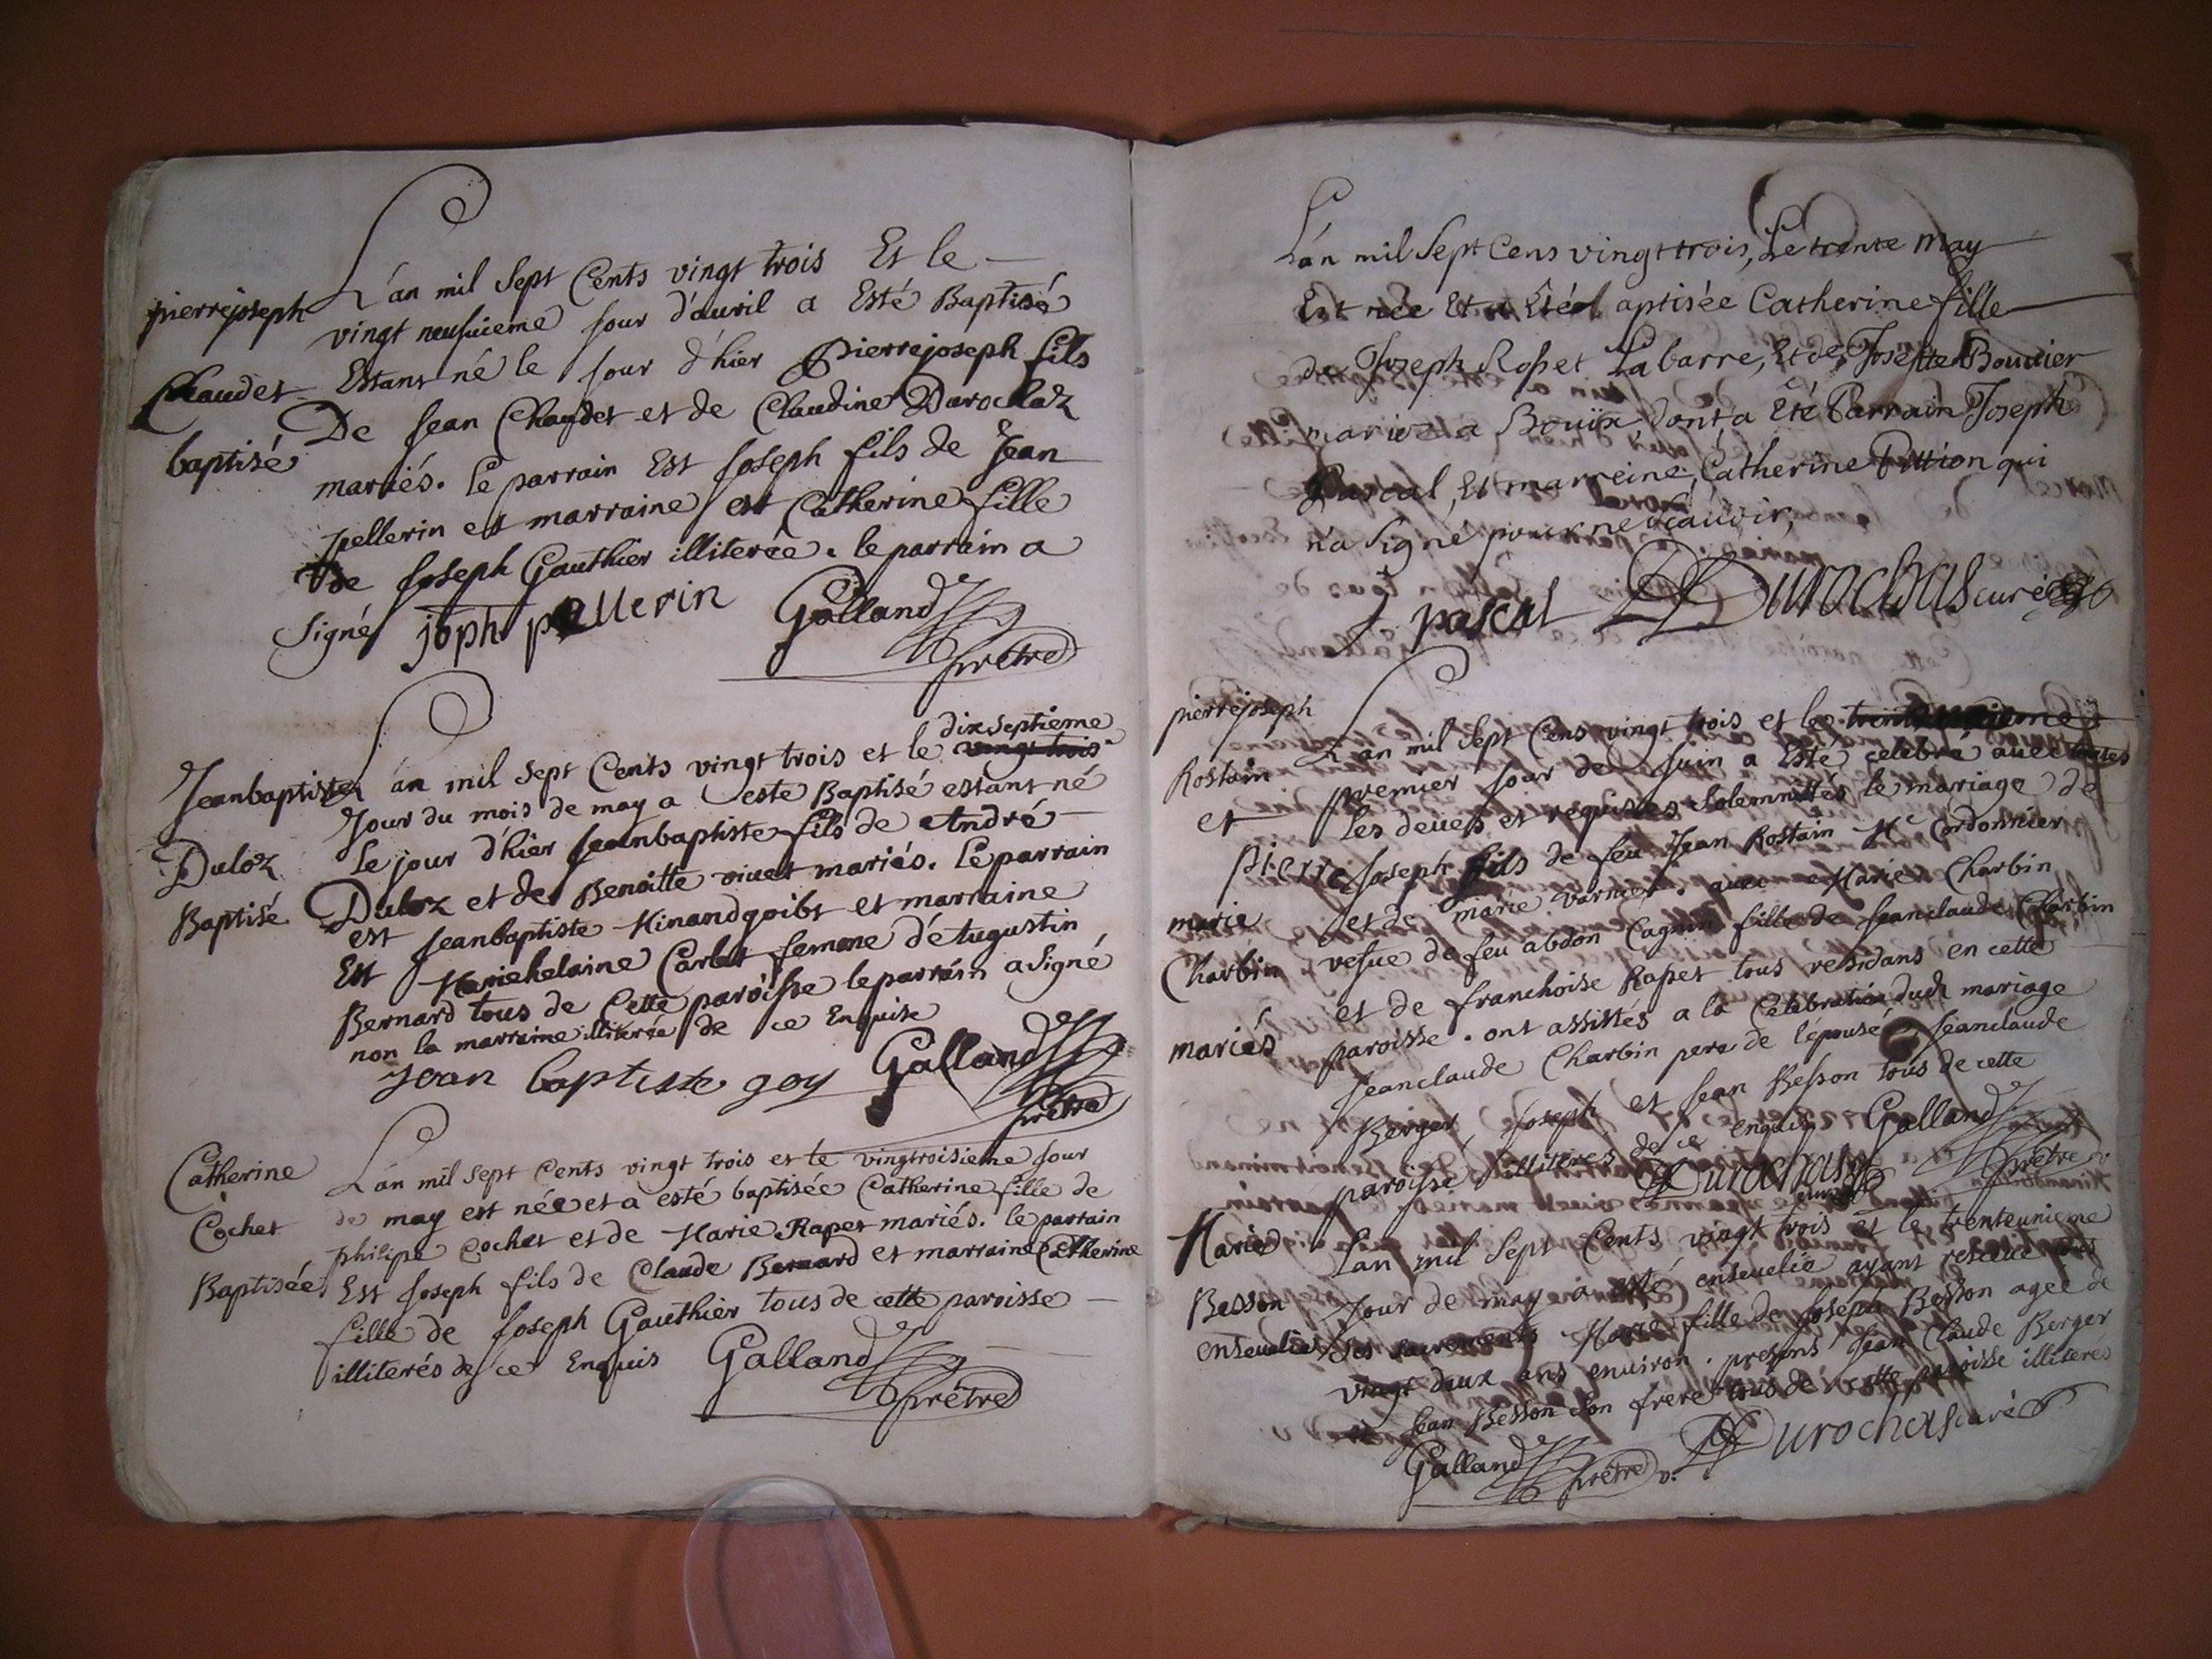 pierrejoseph
Chaudet
baptisé
L'an mil sept Cents vingt trois Et le
vingt neufuieme jour d'auril a Esté Baptisé
Estant né le jour d'hier pierrejoseph fils
De jean Chaudet et de Claudine Durochaz
mariés. le parrain Est joseph fils de Jean
pellerin et marraine est Catherine fille
de joseph Gauthier illiterée. le parrain a
signé joph pellerin Galland
prêtre
Jeanbaptiste
Duloz
Baptisé
dixseptieme
L'an mil sept Cents vingt trois et le vingt trois
Jour du mois de may a esté Baptisé estant né
le jour d'hier jeanbaptiste fils de André
Duloz et de Benoitte viuet mariés. le parrain
est jeanbaptiste Minandgoibt et marraine
Est Mariehelaine Carlet femme d'Augustin
Bernard tous de Cette paroisse le parrain a signé
non la marraine illiterée de ce Enquise
jean baptiste goy Galland
prêtre
Catherine
Cochet
Baptisée
L'an mil sept Cents vingt trois et le vingtroisieme jour
de may est née et a esté baptisée Catherine fille de
philipe Cochet et de Marie Rapet mariés. le parrain
Est joseph fils de Claude Bernard et marraine Catherine
fille de joseph Gauthier tous de cette paroisse
illiterés de ce Enquis Galland
prêtre
L'an mil Sept Cens vingt trois, Le trente may
Est née Et a Eté aptisée Catherine fille
de Joseph Rosset Labarre, Et de Josepte Bouuier
mariez a Bouix, Dont a Eté Parrain Joseph
Pascal, Et marreine, Catherine Pittion qui
n'a Signé pour ne sçauoir,
J pascal Durochas curé
pierrejoseph
Rostain
et
marie
Charbin
mariés
L'an mil sept Cens vingt trois et le
premier jour de juin a Esté celebré auec toutes
les deües et requises solemnités le mariage de
pierre joseph fils de feu Jean Rostain Me Cordonnier
et de marie varnier. auec Marie Charbin
vefue de feu abdon Cagnin fille de jeanclaude Charbin
et de franchoise Rapet tous residans en cette
paroisse. ont assistés a la Celebration dudt mariage
jeanclaude Charbin pere de l'epousé jeanclaude
Berger, joseph et jean Besson tous de cette
paroisse illiteres de ce enquis Galland
Durochas
curé
prêtre
Marie
Besson
enseuelie
L'an mil sept Cents vingt trois et le trenteunieme
jour de may a esté enseuelie ayant receue tous
ses sacrements Marie fille de joseph Besson agee de
vingt deux ans enuiron. presens jean Claude Berger
jean Besson son frere tous de cette paroisse illiterés
Galland prêtre v. Durochas curé